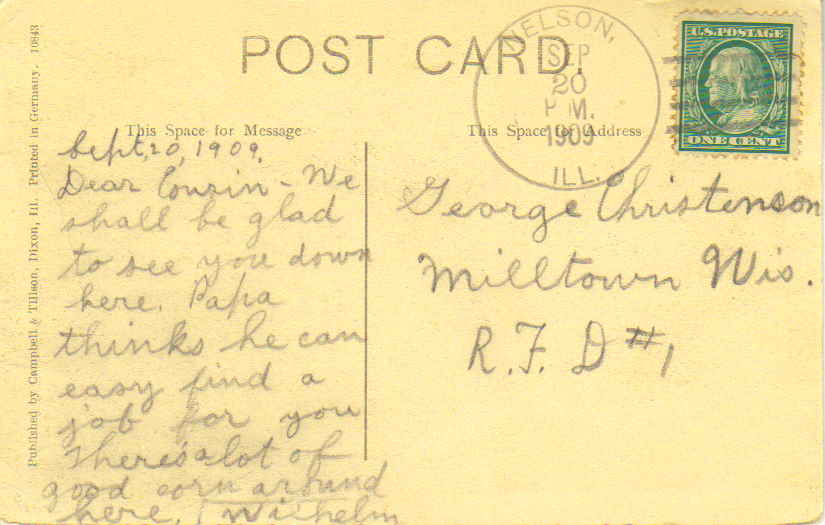 POST CARD.
NELSON,
SEP
20
P M.
1909
ILL.
U.S.POSTAGE
ONE CENT
This Space for Message
This Space for Address
Sept, 20, 1909,
Dear Cousin - We
shall be glad
to see you down
here. Papa
thinks he can
easy find a
job for you
There's a lot of
good corn around
here. Wilhelm
George Christenson
Milltown Wis.
R. F. D #1
Published by Campbell & Tillson, Dixon, Ill. Printed in Germany. 10843